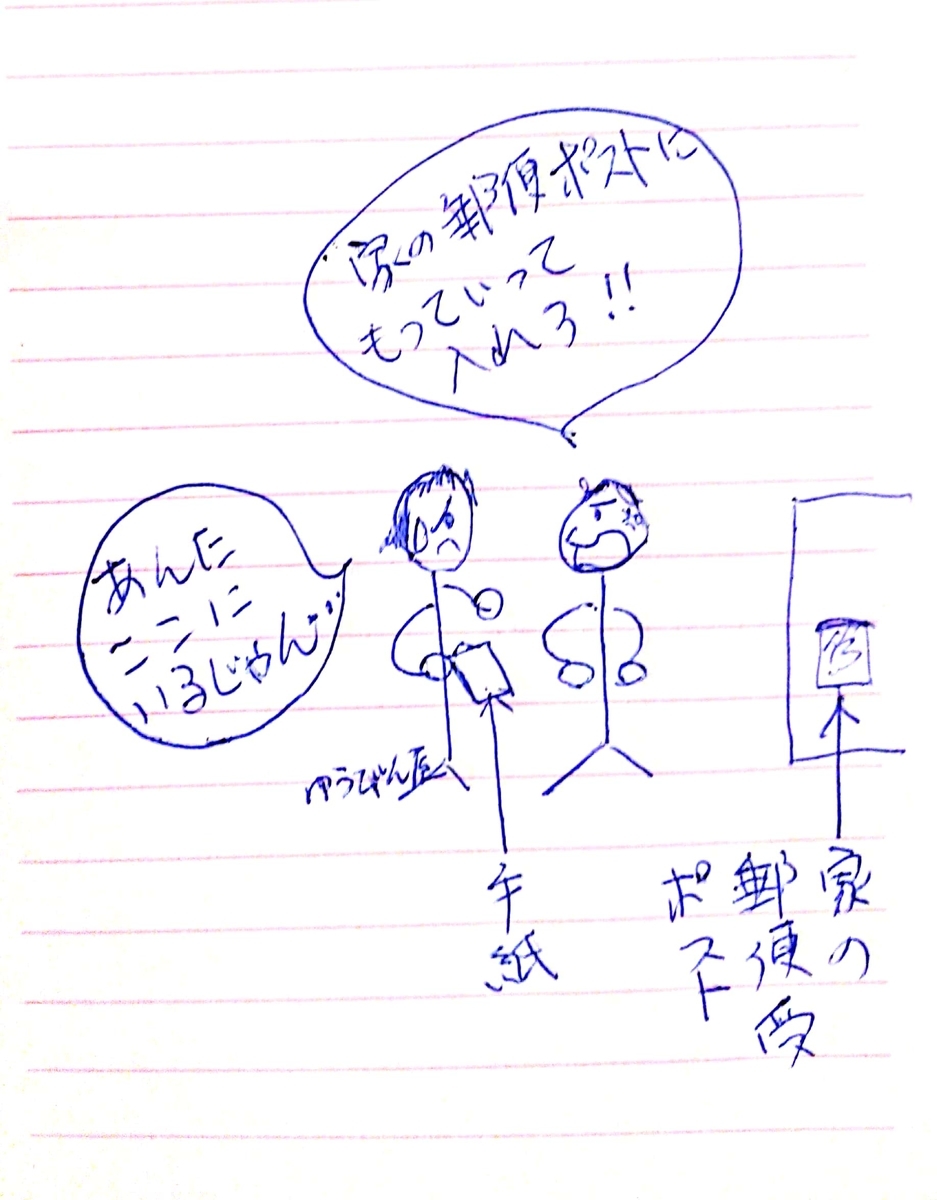 家の郵便ポストに
もっていって
入れろ!!
あんた
ここに
いるじゃん…
ゆうびん屋
手紙
家の
郵便受
ポスト